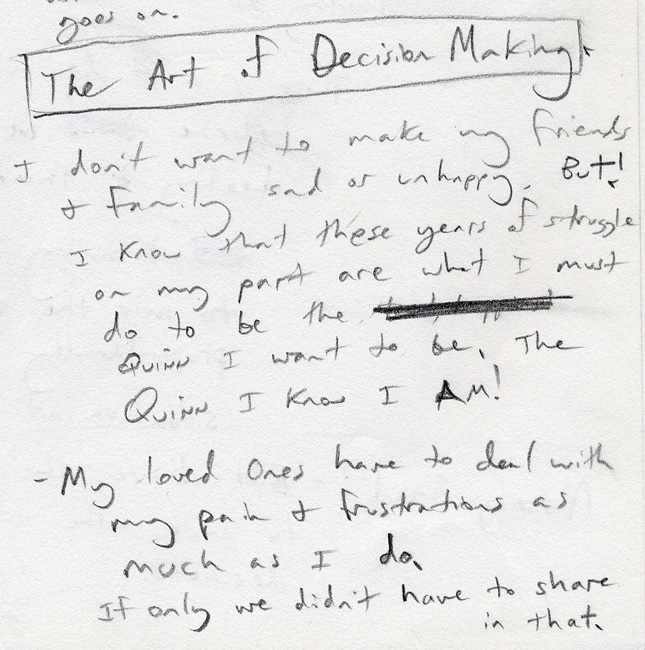 goes on.
The Art of Decision Making.
I don't want to make my friends
& family sad or unhappy. But!
I know that these years of struggle
on my part are what I must
do to be the
Quinn I want to be. The
Quinn I know I AM!
- My loved ones have to deal with
my pain & frustrations as
much as I do.
If only we didn't have to share
in that.